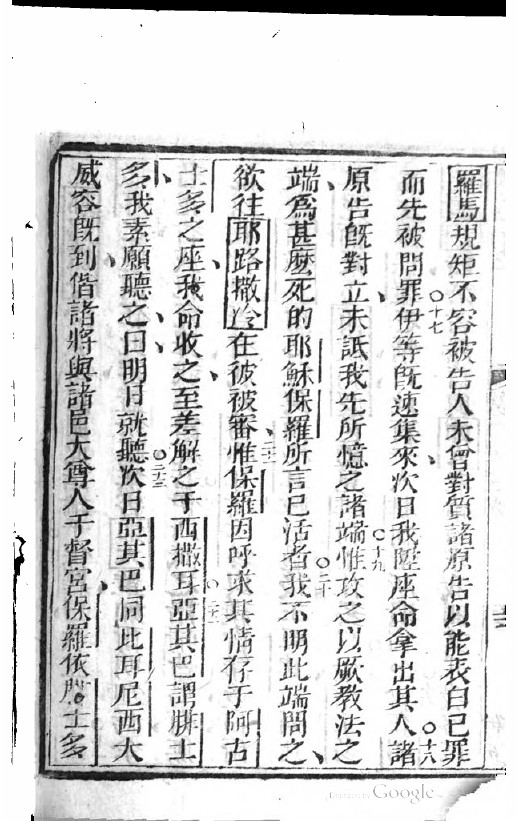 羅馬規矩不容被告人未曾對質諸原告以能表白己罪
而先被問罪○十七伊等旣速集來次日我陞座命拿出其人○十八諸
原告旣對立未詆我先所憶之諸端○十九惟攻之以厥教法之
端爲甚麽死的耶穌保羅所言已活者○二十我不明此端問之
欲往耶路撒冷在彼被審○二一惟保羅因呼求其情存于阿古
士多之座我命收之至差解之于西撒耳○二二亞其巴謂腓士
多我素願聽之曰明日就聽○二三次日亞其巴同比耳尼西大
威容旣到偕諸將與諸邑大尊人于督宮保羅依腓士多
Google